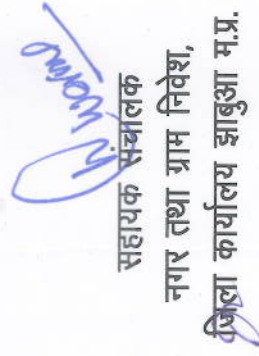 सहायक संचालक
नगर तथा ग्राम निवेश,
जिला कार्यालय झाबुआ म.प्र.